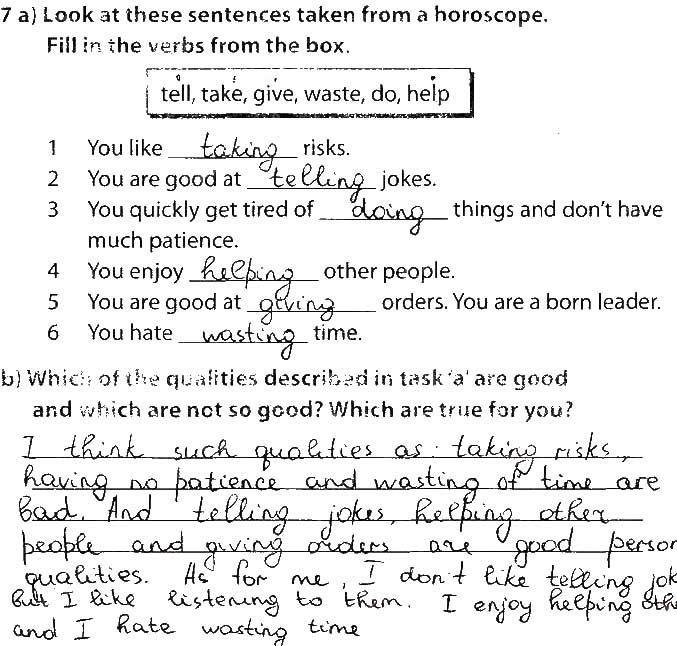 7 a) Look at these sentences taken from a horoscope.
Fill in the verbs from the box.
tell, take, give, waste, do, help
1 You like taking risks.
2 You are good at telling jokes.
3 You quickly get tired of doing things and don't have
much patience.
4 You enjoy helping other people.
5 You are good at giving orders. You are a born leader.
6 You hate wasting time.
b) Which of the qualities described in task 'a' are good
and which are not so good? Which are true for you?
I think such qualities as: taking risks,
having no patience and wasting of time are
bad. And telling jokes, helping other
people and giving orders are good person
qualities. As for me, I don't like telling jok
But I like listening to them. I enjoy helping oth
and I hate wasting time